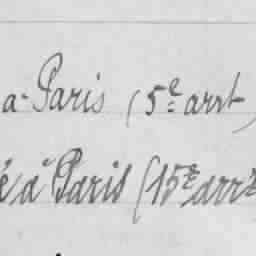 a Paris (5e arrt)
é à Paris (15e arrt